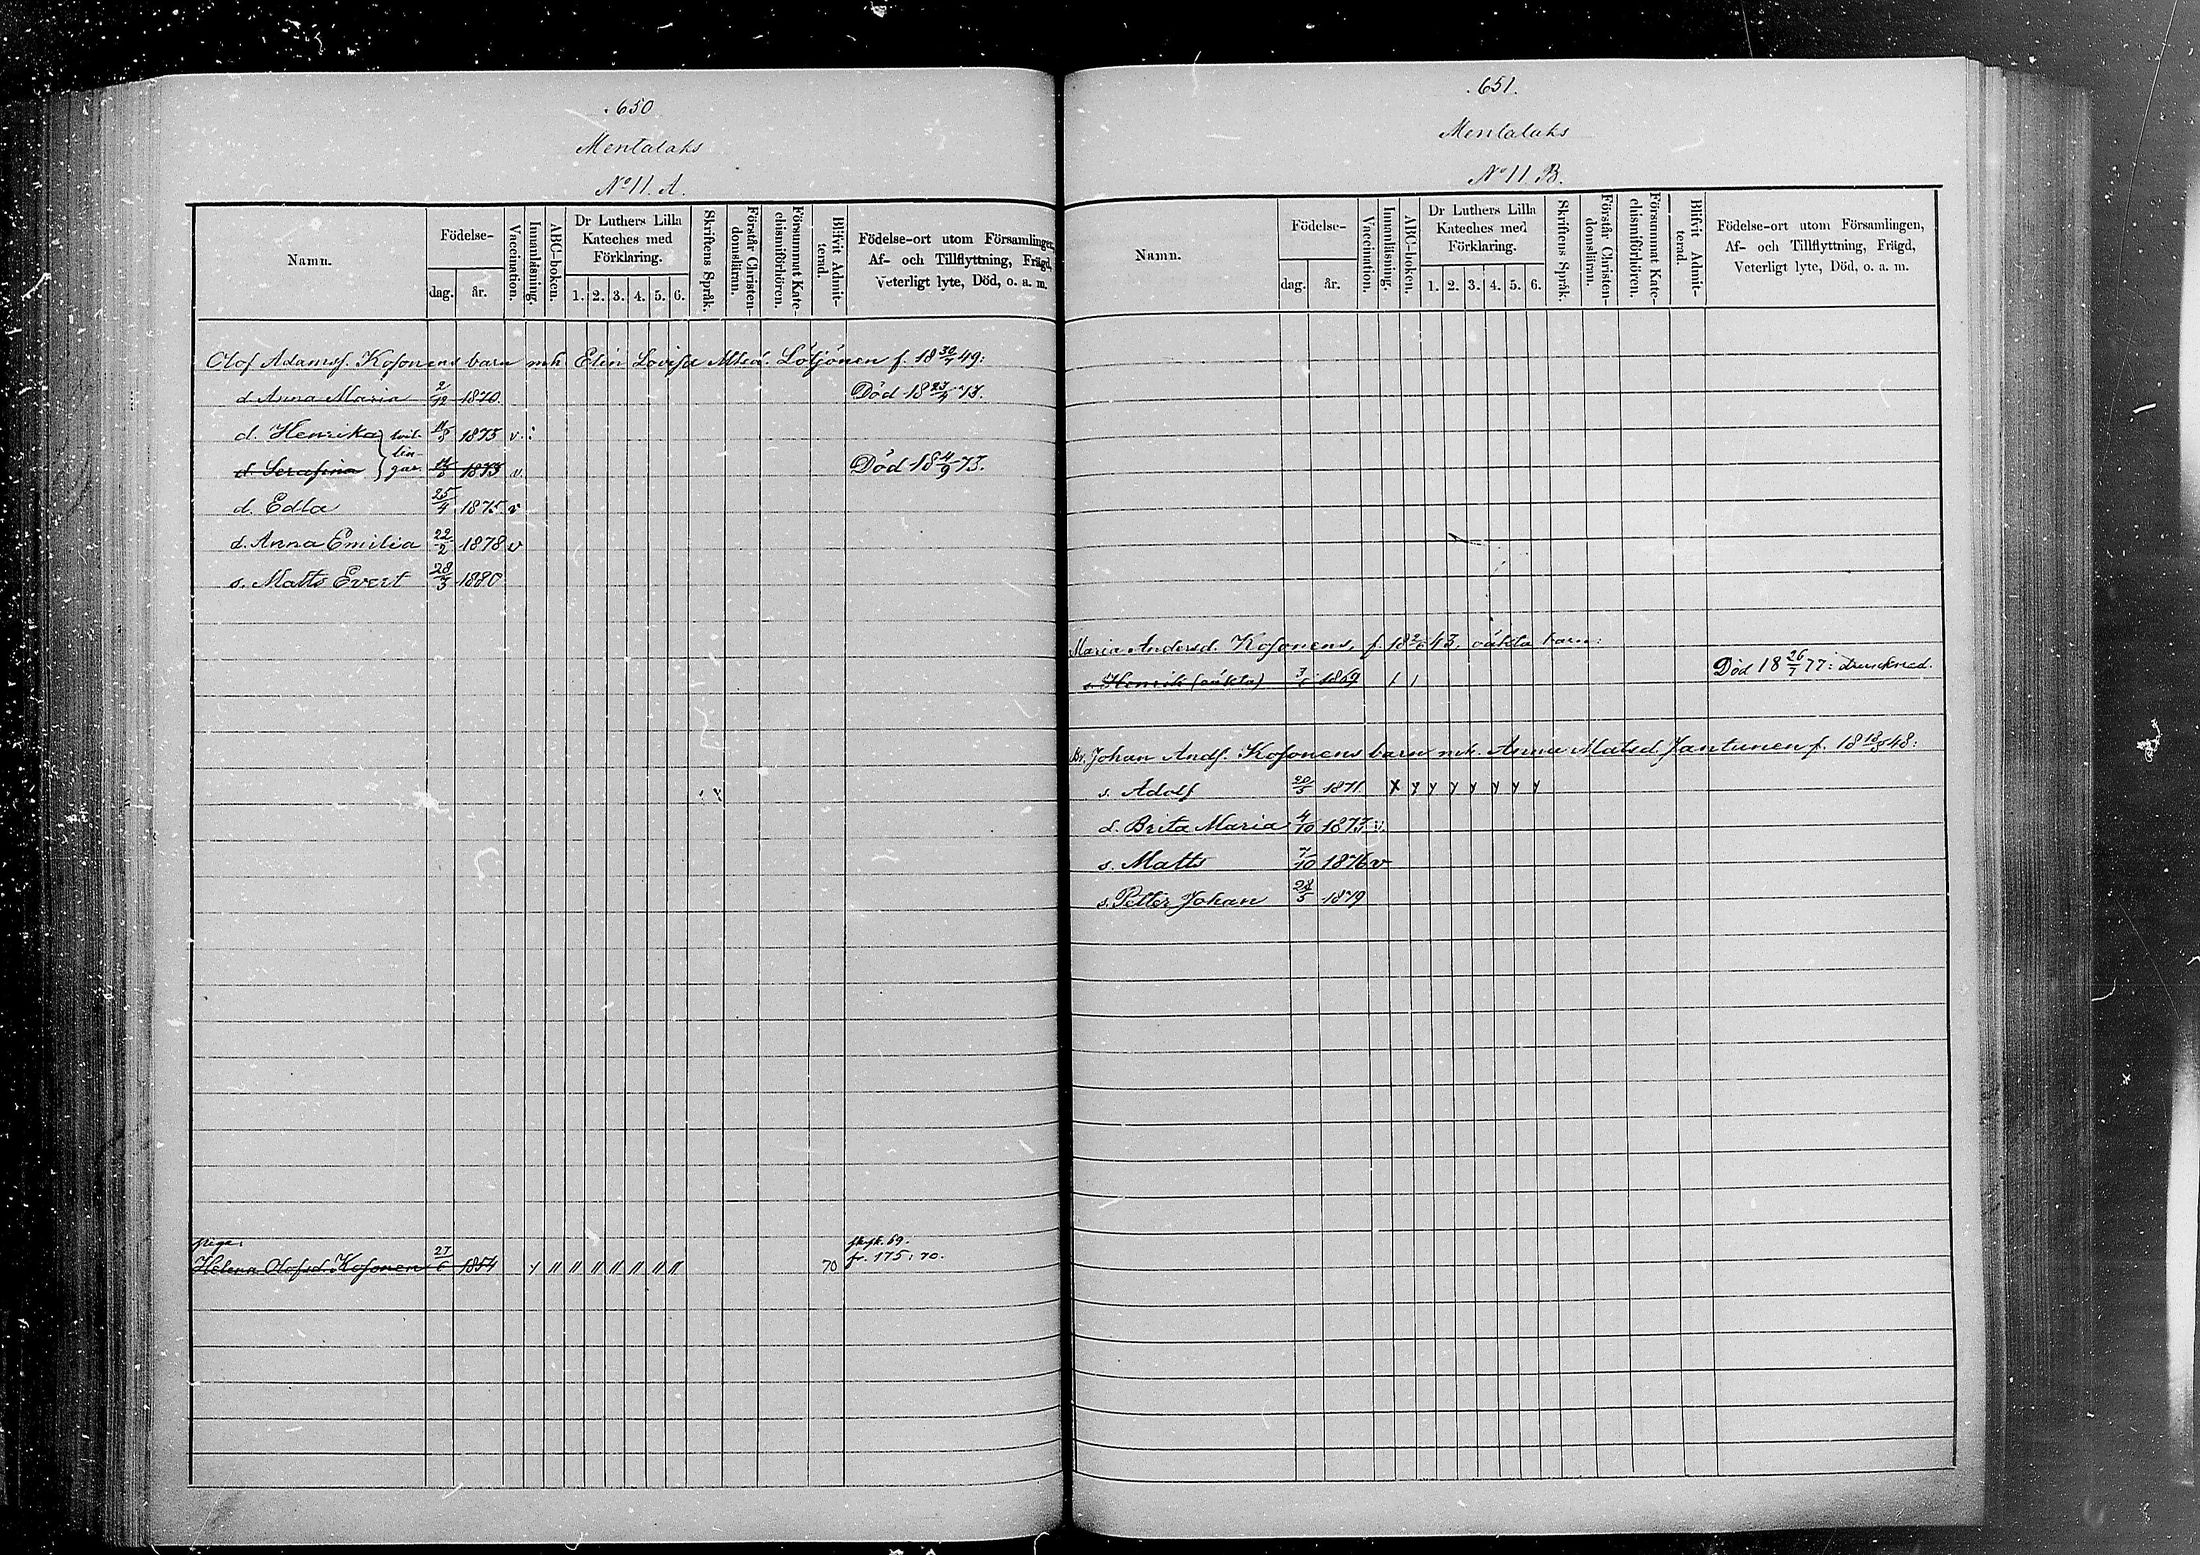 650
Mentalaks
No 11. A.
Namn.
Födelse-
dag.
år.
Vaccination.
Innanläsning.
ABC-boken.
Dr Luthers Lilla Kateches med Förklaring.
1. 2. 3. 4. 5. 6.
Skriftens Språk.
Förstår Christendomsläran.
Försummat Katechismiförhören.
Blifvit Admitterad.
Födelse-ort utom Församlingen,
Af- och Tillflyttning, Frägd,
Veterligt lyte, Död, o. a. m.
Olof Adamsf. Kosonens barn mh. Elin Lovisa Löljönen f. 18 30/7 49:
d Anna Maria 2/12 1870. Död 18 23/4 73.
d. Henrika 1873 v.
tvil-
lin-
gar.
d. Serafina 1873 v. Död 18 4/9 73.
d. Edla 25/4 1875 v
d. Anna Emilia 22/2 1878 v
s. Matts Evert 28/3 1880
piga.
69.
Helena Olofsd. Kosonen 27/6 1854 70 fr. 175: 70.
651.
Mentalaks
No 11. B.
Namn.
Födelse-
dag.
år.
Vaccination.
Innanläsning.
ABC-boken.
Dr Luthers Lilla Kateches med Förklaring.
1. 2. 3. 4. 5. 6.
Skriftens Språk.
Förstår Christendomsläran.
Försummat Katechismiförhören.
Blifvit Admitterad.
Födelse-ort utom Församlingen,
Af- och Tillflyttning, Frägd,
Veterligt lyte, Död, o. a. m.
Maria Andersd. Kosonens, f. 43, oäkta barn:
s. Henrik (oäkta) 1869 Död 18 26/7 77: drunknad.
Br. Johan Andf. Kosonens barn mh. Anna Matsd. Jantunen f. 18 18/5 48:
s. Adolf 20/5 1871 x y y y y y y y
d. Brita Maria 4/10 1873 v.
s. Matts 7/10 1876 v
s. Petter Johan 28/5 1879